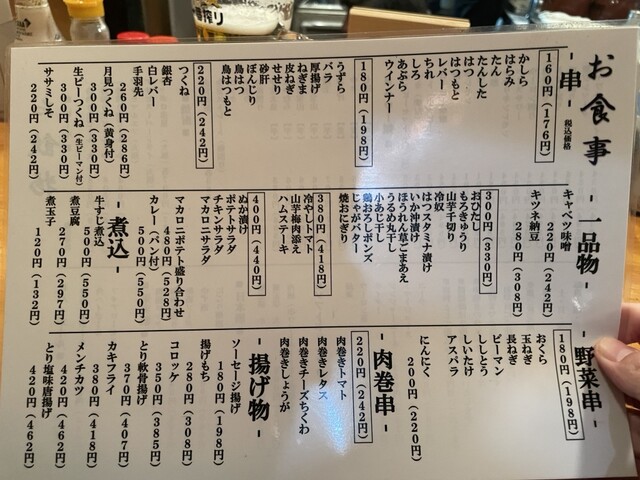 搾り
お食事
- 串 -
税込価格
160円(176円)
かしら
はらみ
たん
たんした
はつ
はつもと
レバー
ちれ
しろ
あぶら
ウインナー
180円(198円)
うずら
バラ
厚揚げ
ねぎま
皮ねぎ
せせり
砂肝
ぼんじり
鳥はつ
鳥はつもと
220円(242円)
つくね
銀杏
白レバー
手羽先
260円(286円)
月見つくね(黄身付)
300円(330円)
生ピーつくね(生ピーマン付)
300円(330円)
ササミしそ
220円(242円)
- 一品物 -
キャベツ味噌
220円(242円)
キツネ納豆
280円(308円)
300円(330円)
おひたし
もろきゅう
山芋千切り
冷奴
はつスタミナ漬け
いか沖漬け
ほうれん草ごまあえ
うるめ丸干し
小あじ干し
鶏おろしポンズ
じゃがバター
焼おにぎり
380円(418円)
冷やしトマト
山芋梅肉添え
ハムステーキ
400円(440円)
ぬか漬け
ポテトサラダ
チキンサラダ
マカロニサラダ
マカロニポテト盛り合わせ
480円(528円)
カレー(パン付)
500円(550円)
- 煮込 -
牛すじ煮込
500円(550円)
煮豆腐
270円(297円)
煮玉子
120円(132円)
- 野菜串 -
180円(198円)
おくら
玉ねぎ
長ねぎ
ピーマン
ししとう
しいたけ
アスパラ
にんにく
200円(220円)
- 肉巻串 -
220円(242円)
肉巻きトマト
肉巻きレタス
肉巻きチーズちくわ
肉巻きしょうが
- 揚げ物 -
ソーセージ揚げ
180円(198円)
揚げもち
280円(308円)
コロッケ
350円(385円)
とり軟骨揚げ
370円(407円)
カキフライ
380円(418円)
メンチカツ
420円(462円)
とり塩味唐揚げ
420円(462円)